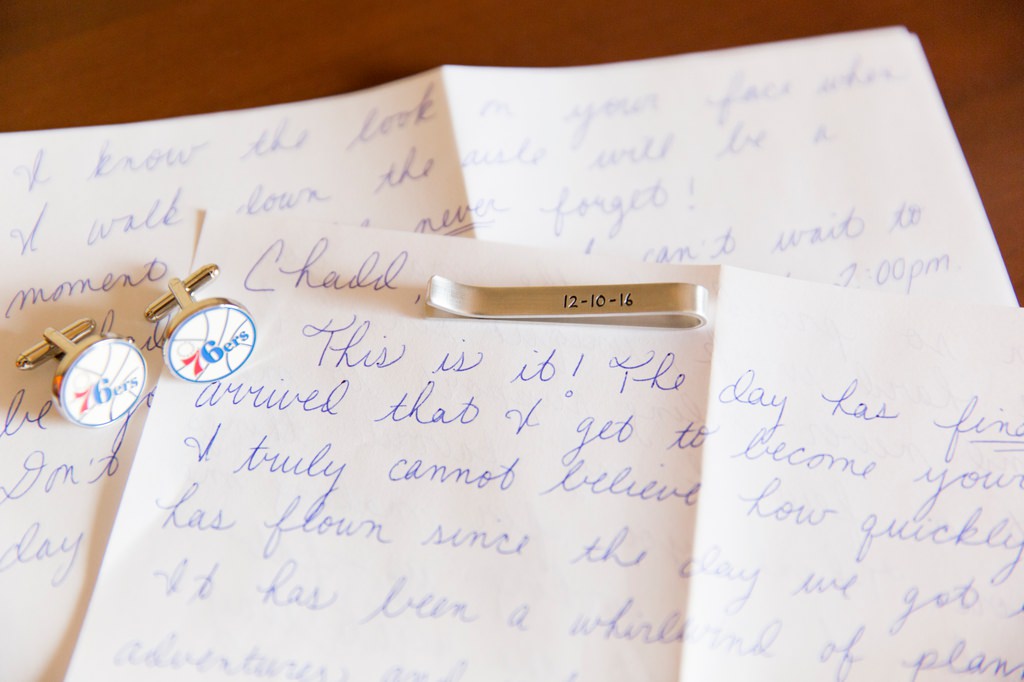 I know the look on your face when
I walk down the aisle will be a
moment never forget!
can't wait to
2:00pm.
be
Don't
day
76ers
76ers
12-10-16
Chadd,
This is it! The day has
arrived that I get to become your
I truly cannot believe how quickly
has flown since the day we got
It has been a whirlwind of
adventures and